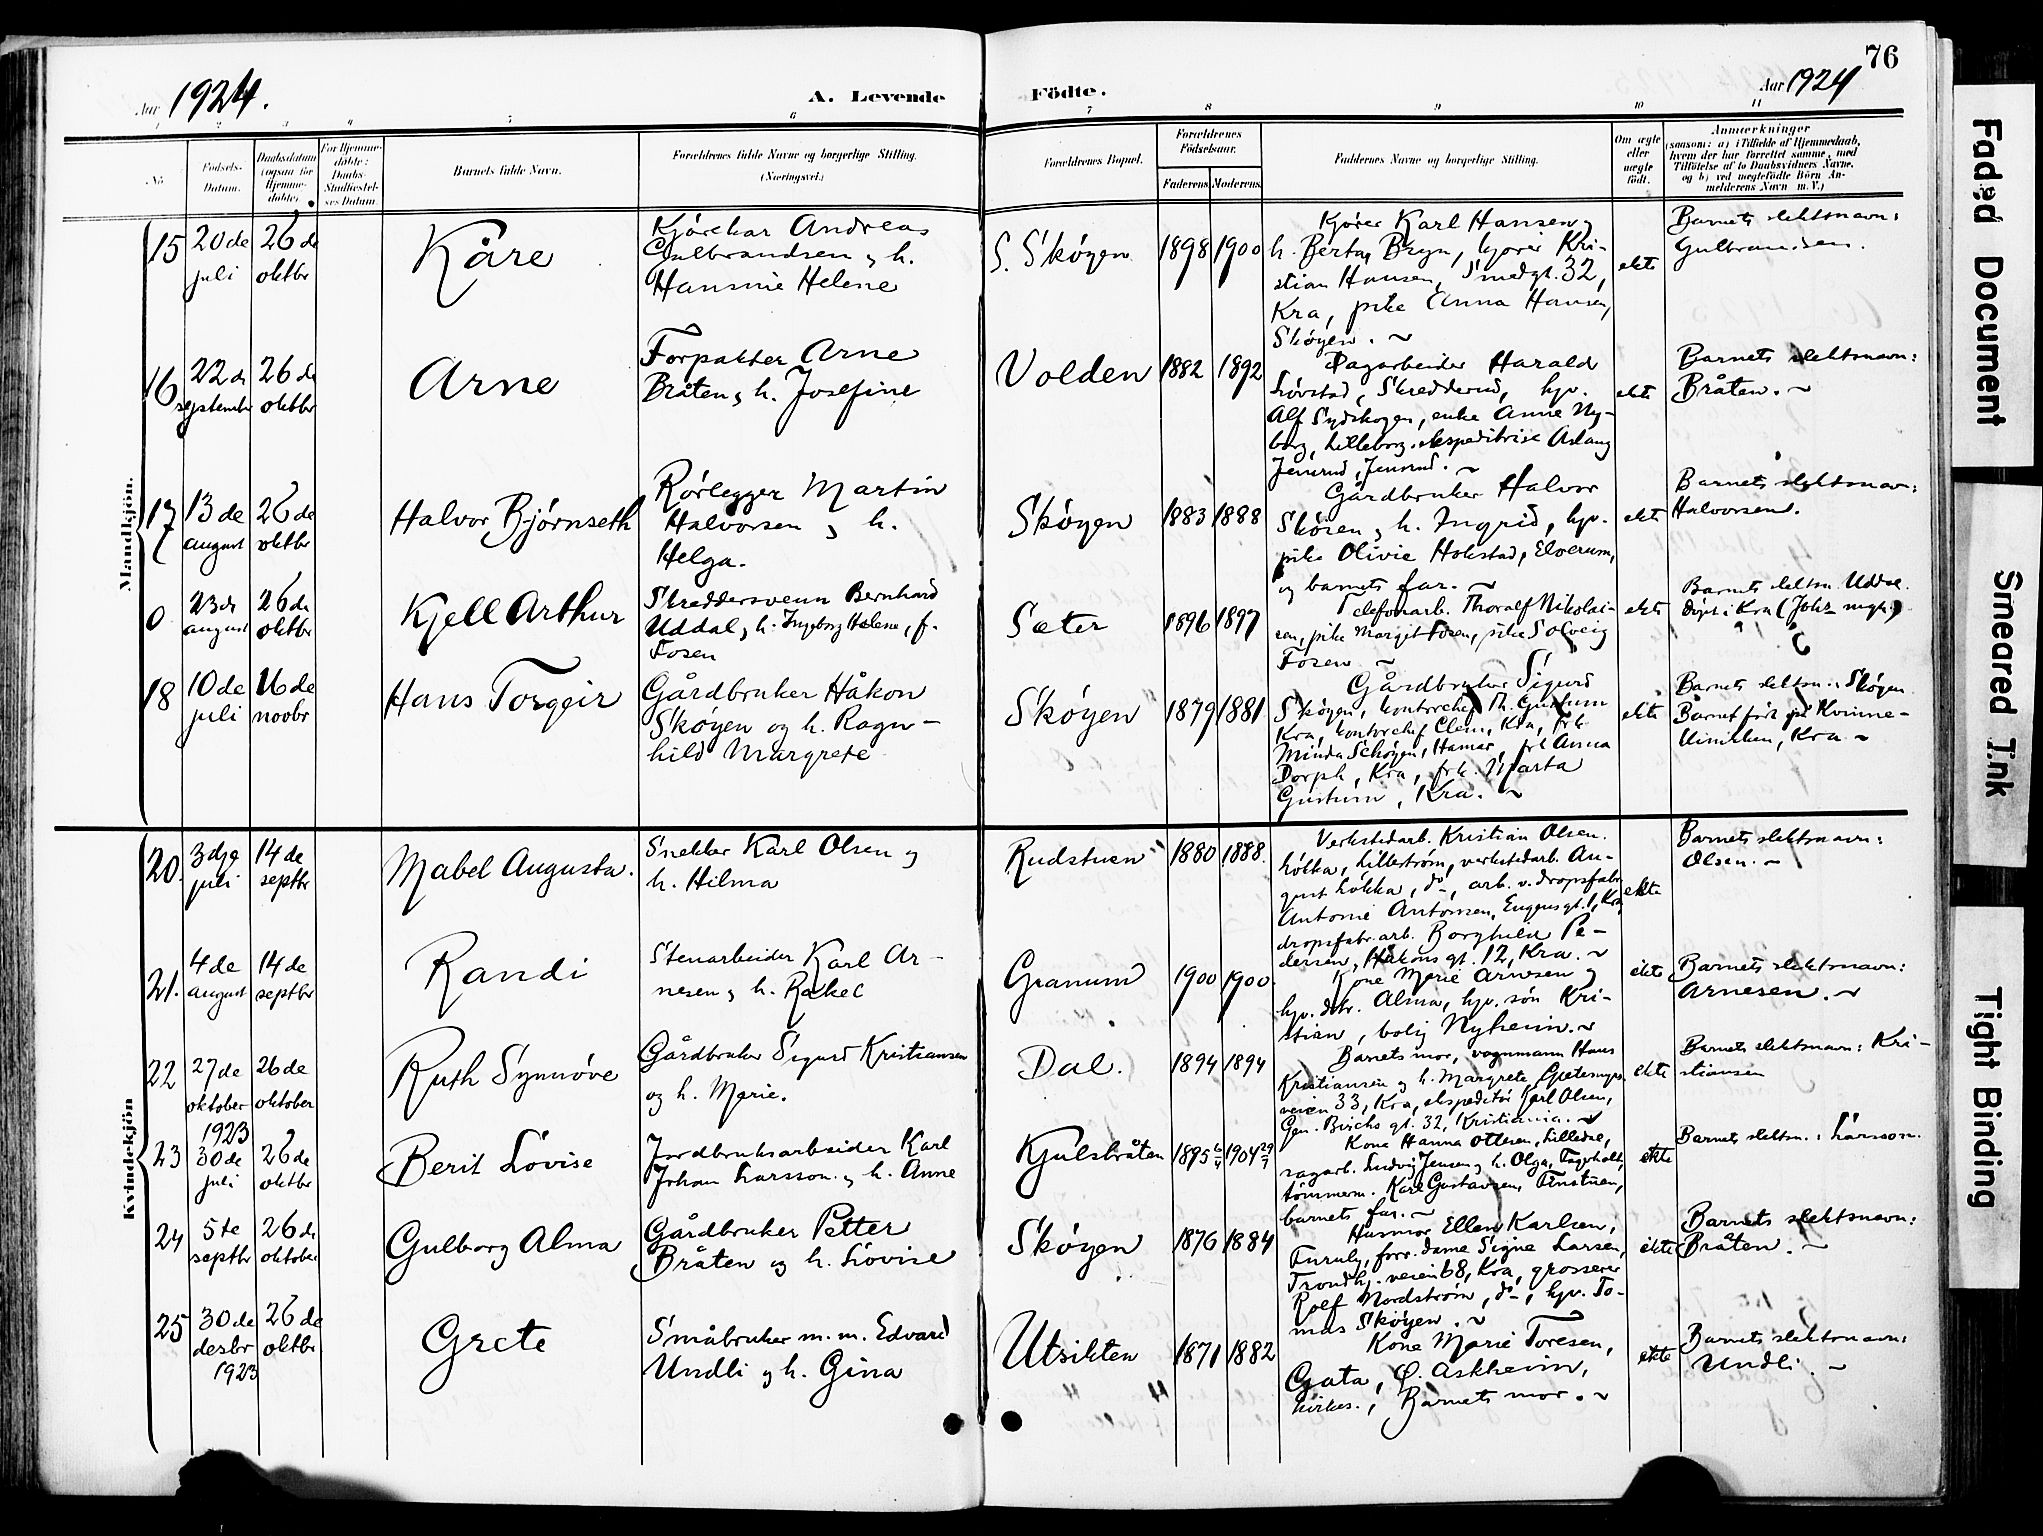 76
Aar 1924.
A. Levende
Födte.
Aar 1924
1 2 3 4 5 6 7 8 9 10 11
No
Födsels-
Datum.
Daabsdatum
(ogsaa for
Hjemme-
döbte)
For Hjemme-
döbte:
Daabs-
Stadfæstel-
ses Datum.
Barnets fulde Navn.
Forældrenes fulde Navne og borgerlige Stilling.
(Næringsvei.)
Forældrenes Bopæl.
Forældrenes
Födselsaar.
Faderens
Moderens
Faddernes Navne og borgerlige Stilling.
Om ægte
eller
uægte
födt.
Anmærkninger
(saasom: a) i Tilfælde af Hjemmedaab,
hvem der har forrettet samme, med
Tilföielse af to Daabsvidners Navne,
og b) ved uægtefödte Börn An-
melderens Navn m. V.)
Mandkjön.
15
20de
juli
26de
oktbr
Kåre
Kjørekar Andreas
Gulbrandsen & h.
Hansine Helene
S. Skøyen
1898
1900
Kjører Karl Hansen &
h. Berta, Bryn, kjører Kri-
stian Hansen, Smedgt. 32,
Kra, pike Anna Hansen,
Skøyen. ~
ekte
Barnets slektsnavn:
Gulbrandsen.
16
22de
september
26de
oktbr
Arne
Forpakter Arne
Bråten & h. Josefine
Volden
1882
1892
Dagarbeider Harald
Løvstad, Skredderud, hjv.
Alf Sydskogen, enke Anne Ny-
borg, Lilleborg, ekspeditrise Aslaug
Jensrud, Jensrud. ~
ekte
Barnets slektsnavn:
Bråten. ~
17
13de
august
26de
oktbr
Halvor Bjørnseth
Rørlegger Martin
Halvorsen & h.
Helga.
Skøyen
1883
1888
Gårdbruker Halvor
Skøien & h. Ingrid, hjv.
pike Olivie Hokstad, Elverum,
og barnets far. ~
ekte
Barnets slektsnavn:
Halvorsen.
0
23de
august
26de
oktbr
Kjell Arthur
Skreddersvenn Bernhard
Uddal & h. Ingeborg Helene, f.
Fosen
Sæter
1896
1897
Telefonarb. Thoralf Nikolai-
sen, pike Margit Fosen, pike Solveig
Fosen ~
ekte
Barnets slektsn. Uddal.
Døpt i Kra (Johs mgh.)
18
10de
juli
16de
novbr
Hans Torgeir
Gårdbruker Håkon
Skøyen og h. Ragn-
hild Margrete
Skøyen
1879
1881
Gårdbruker Sigurd
Skøyen, kontorchef Th. Gustum
Kra, kontorchef Clem, Kra, frk
Minda Schøyen, Hamar, frk Anna
Dorph, Kra, frk. Marta
Gustum, Kra. ~
ekte
Barnets slektsn.: Skøyen
Barnet født på Kvinne-
klinikken, Kra ~
Kvindekjön
20.
3dje
juli
14de
septbr
Mabel Augusta.
Snekker Karl Olsen &
h. Hilma
Rudstuen
1880
1888.
Verkstedarb. Kristian Olsen.
Løkka, Lillestrøm, verkstedarb. Au-
gust Løkka, do, arb. v. dropsfabr.
Antonie Antonsen, Eugensgt. 1, Kra,
dropsfabr. arb. Borghild Pe-
dersen, Håkons gt. 12, Kra. ~
ekte
Barnets slektsnavn:
Olsen. ~
21.
4de
august
14de
septbr
Randi
Stenarbeider Karl Ar-
nesen & h. Rakel
Granum
1900
1900.
Kone Marie Arnesen &
hjv. dtr. Alma, hjv. søn Kri-
stian, bolig Nyheim. ~
ekte
Barnets slektsnavn:
Arnesen. ~
22
27de
oktober
1923
26de
oktober
Ruth Synnøve
Gårdbruker Sigurd Kristiansen
og h. Marie.
Dal.
1894
1894
Barnets mor, vognmann Hans
Kristiansen og h. Margrete, Geitemyrs-
veien 33, Kra, ekspeditør Karl Olsen,
Gen. Birchs gt. 32, Kristiania. ~
ekte
Barnets slektsnavn: Kri-
stiansen
23
30de
juli
26de
oktbr
Berit Lovise
Jordbruksarbeider Karl
Johan Larsson & h. Anne
Kjulsbråten
1895 6/4
1904 29/7
Kone Hanna Ottesen, Lilledal,
sagarb. Ludvig Jensen & h. Olga, Fagerholt,
tømmerm. Karl Gustavsen, Finstuen,
barnets far. ~
ekte
Barnets slektsn.: Larsson.
24
5te
septbr
26de
oktober
Gulborg Alma
Gårdbruker Petter
Bråten og h. Lovise
Skøyen
1876
1884
Husmor Ellen Karlsen,
Furuly, forr. dame Signe Larsen,
Trondhj. veien 68, Kra, grosserer
Rolf Nordstrøm, do, hjv. To-
mas Skøyen. ~
ekte
Barnets slektsnavn:
Bråten. ~
25
30de
desbr
1923
26de
oktbr
Grete
Småbruker m. m. Edvard
Undli & h. Gina
Utsikten
1871
1882
Kone Marie Toresen,
Gata, Ø. Askheim,
kirkes., Barnets mor. ~
ekte
Barnets slektsnavn:
Undli ~
Faded Document
Smeared Ink
Tight Binding